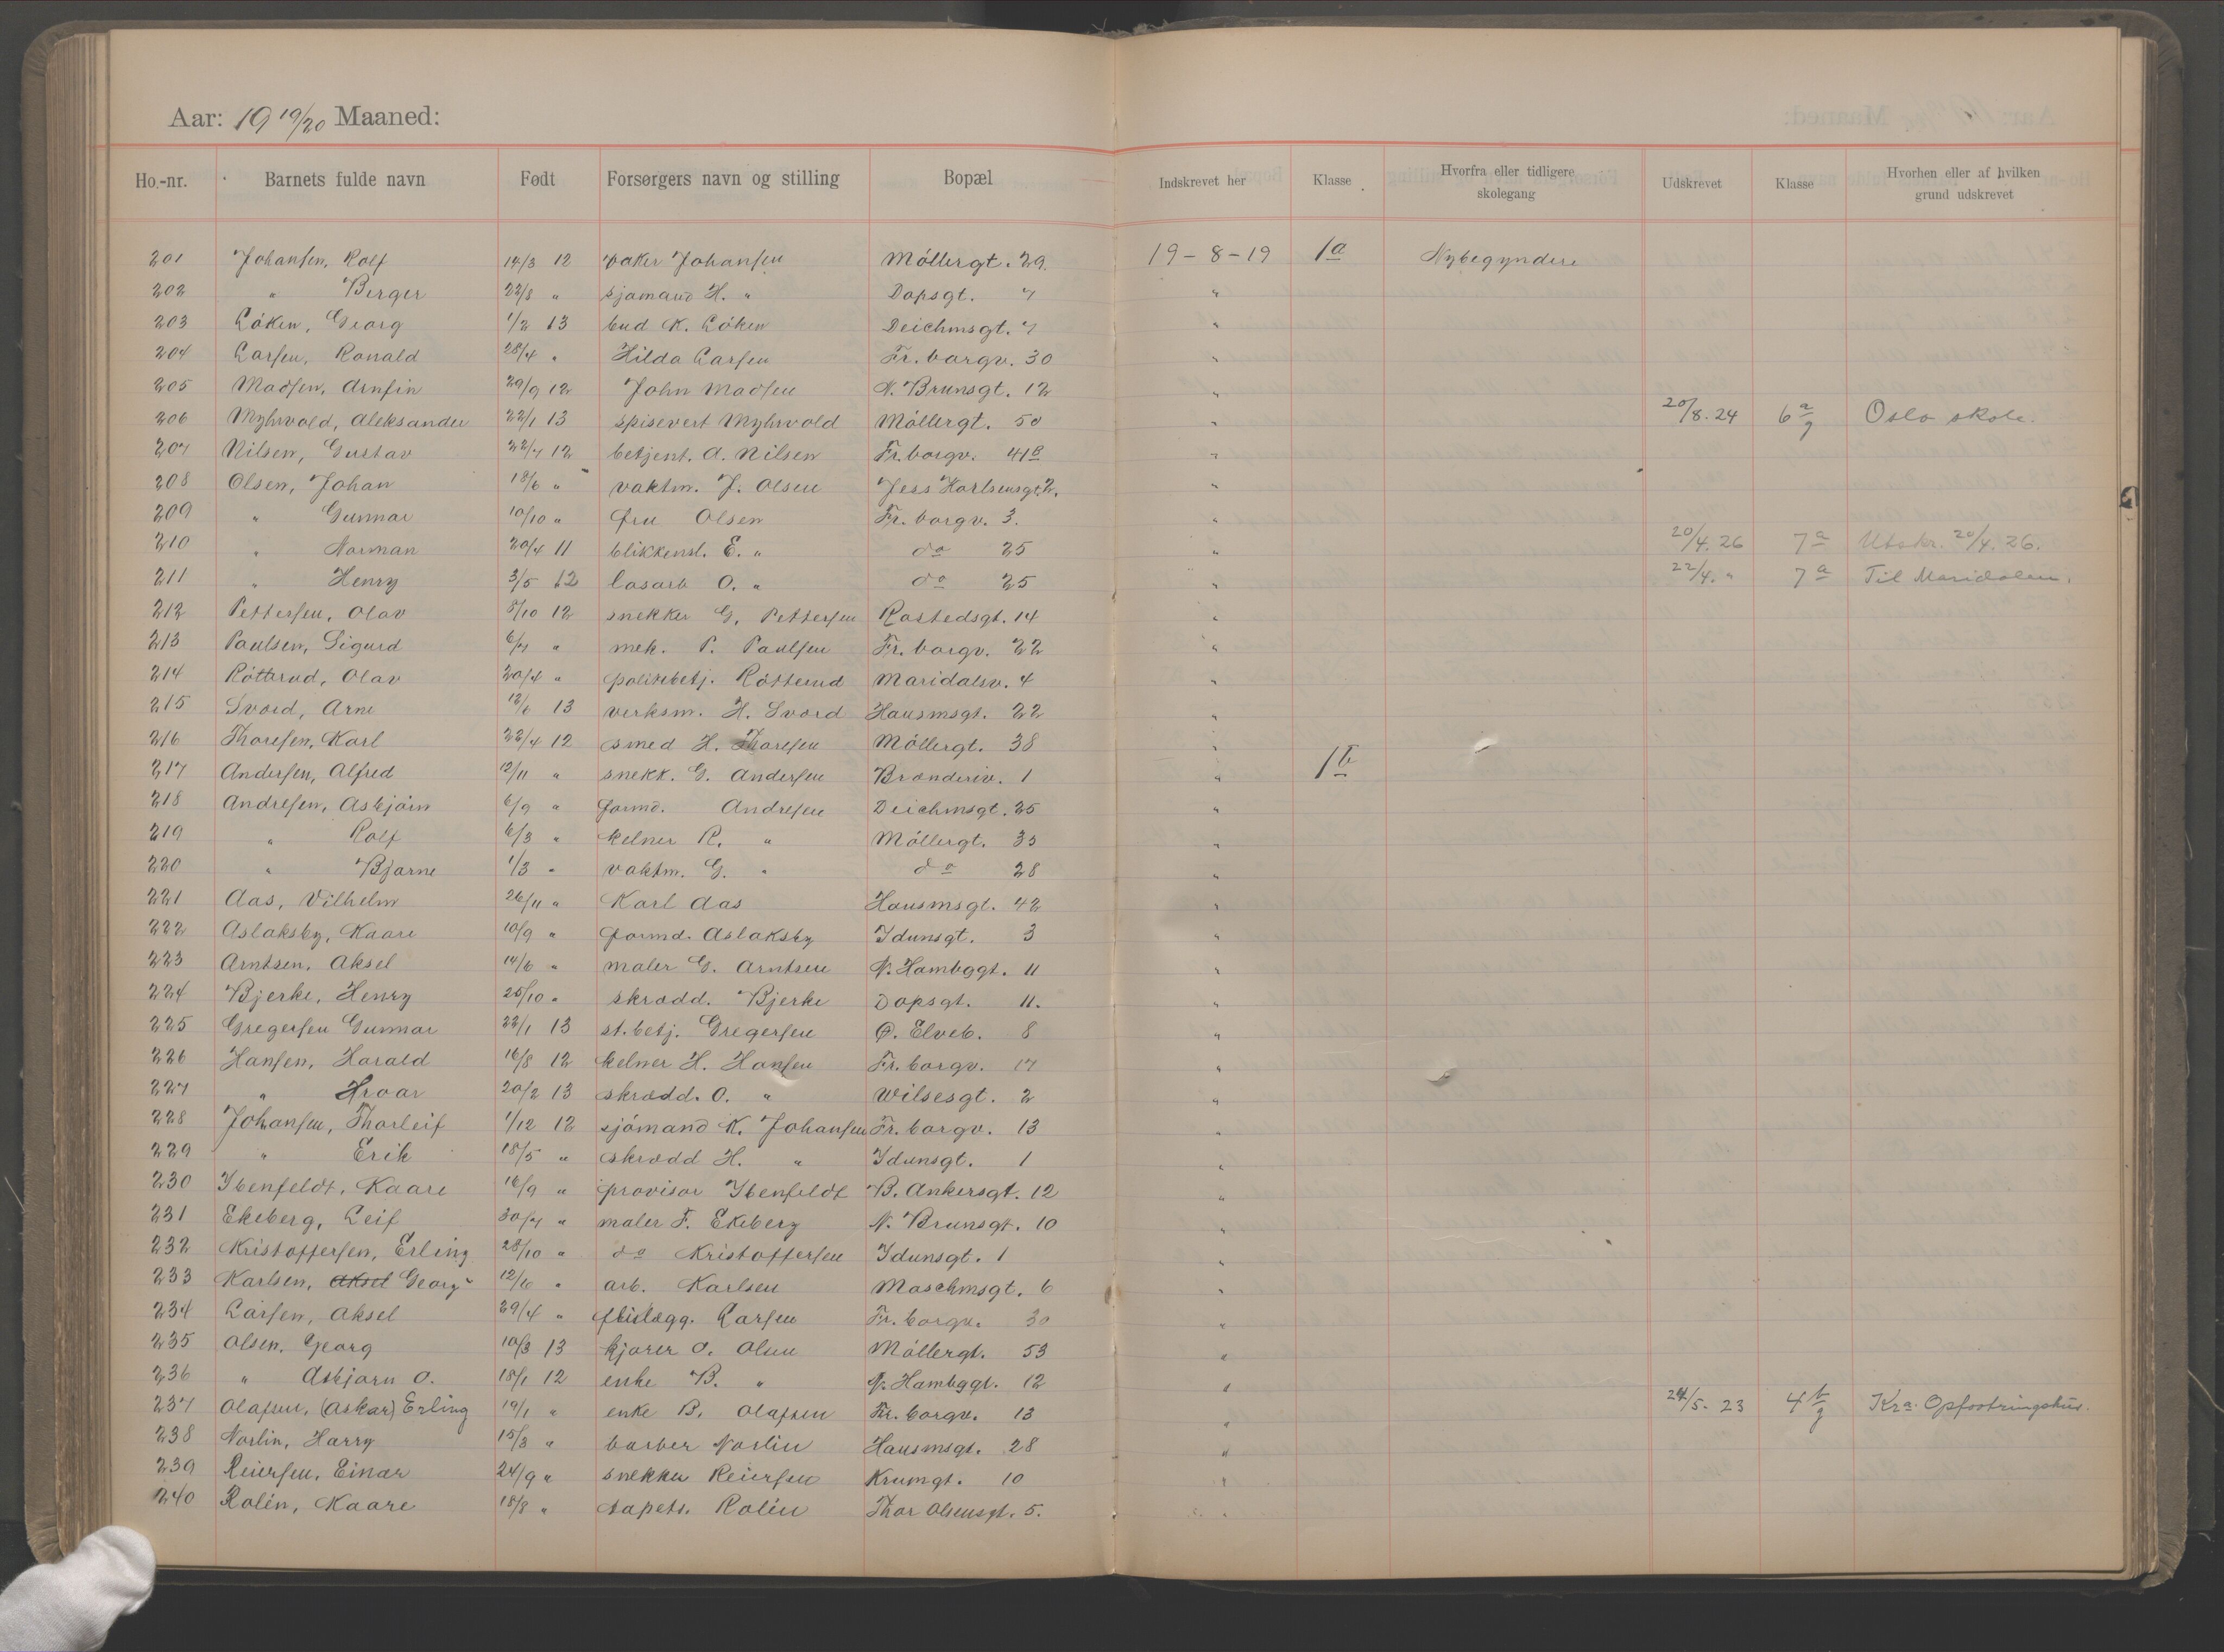 Aar: 19 19/20 Maaned:
Ho.-nr. Barnets fulde navn Født Forsørgers navn og stilling Bopæl Indskrevet her Klasse Hvorfra eller tidligere skolegang Udskrevet Klasse Hvorhen eller af hvilken grund udskrevet
201 Johansen, Rolf 14/3 12 Johansen Møllergt. 29. 19-8-19 1a Nybegyndere
202 " Birger 22/8 " sjømand H. " Dopsgt. 7 "
203 Løken, Georg 1/2 13 bud K. Løken Deichmsgt. 7 "
204 Larsen, Ronald 28/4 " Hilda Larsen Fr. borgv. 30 "
205 Madsen, Arnfin 29/9 12 John Madsen N. Brunsgt. 12 "
206 Myhrvold, Aleksander 22/1 13 spisevert Myhrvold Møllergt. 50 " 20/8. 24 6a/g Oslo skole.
207 Nilsen, Gustav 22/7 12 betjent. A. Nilsen Fr. borgv. 41B "
208 Olsen, Johan 18/6 " vaktm. J. Olsen Jess Karlsensgt. 2. "
209 " Gunnar 10/10 " fru Olsen Fr. borgv. 3. "
210 " Norman 20/4 11 blikkensl. E. " do 25 " 20/4. 26 7a Utskr. 20/4. 26.
211 " Henry 3/5 12 løsarb O. " do 25 " 22/4. " 7a Til Maridalen.
212 Pettersen, Olav 8/10 12 snekker G. Pettersen Rostedsgt. 14 "
213 Paulsen, Sigurd 6/7 " mek. P. Paulsen Fr. borgv. 22 "
214 Røtterud, Olav 20/4 " politibetj. Røtterud Maridalsv. 4 "
215 Svord, Arne 12/1 13 verksm. H. Svord Hausmsgt. 22 "
216 Thoresen, Karl 22/4 12 smed H. Thoresen Møllergt. 38 "
217 Andersen, Alfred 12/11 " snekk. G. Andersen Brænderiv. 1 " 1b
218 Andresen, Asbjørn 6/9 " formd. Andresen Deichmsgt. 25 "
219 " Rolf 6/3 " kelner R. " Møllergt. 35 "
220 " Bjarne 1/3 " vaktm. G. " do 28 "
221 Aas, Vilhelm 26/11 " Karl Aas Hausmsgt. 42 "
222 Aslaksby, Kaare 10/9 " formd. Aslaksby Idunsgt. 3 "
223 Arntsen, Aksel 14/6 " maler G. Arntsen N. Hambggt. 11 "
224 Bjerke, Henry 25/10 " skrædd. Bjerke Dopsgt. 11. "
225 Gregersen Gunnar 22/1 13 st. betj. Gregersen Ø. Elveb. 8 "
226 Hansen, Harald 16/8 12 kelner H. Hansen Fr. borgv. 17 "
227 " Hroar 20/2 13 skrædd. O. " Wilsesgt. 2 "
228 Johansen, Thorleif 1/12 12 sjømand K. Johansen Fr. borgv. 13 "
229 " Erik 18/5 " skrædd H. " Idunsgt. 1 "
230 Ibenfeldt, Kaare 16/9 " provisor Ibenfeldt B. Ankersgt. 12 "
231 Ekeberg, Leif 30/7 " maler F. Ekeberg N. Brunsgt. 10 "
232 Kristoffersen, Erling 28/10 " do Kristoffersen Idunsgt. 1 "
233 Karlsen, Aksel Georg 12/10 " arb. Karlsen Maschmsgt. 6 "
234 Larsen, Aksel 29/4 " Larsen Fr. borgv. 30 "
235 Olsen, Georg 10/3 13 kjører O. Olsen Møllergt. 53 "
236 " Asbjørn O. 18/1 12 enke B. " N. Hambggt. 12 "
237 Olafsen, (Oskar) Erling 19/1 " enke B. Olafsen Fr. borgv. 13 " 24/5. 23 4b/g Kra. Opfostringshus.
238 Norlin, Harry 15/3 " barber Norlin Hausmsgt. 28 "
239 Reiersen, Einar 24/9 " snekker Reiersen Krumgt. 10 "
240 Rolin, Kaare 18/8 " tapets. Rolin Thor Olsensgt. 5. "